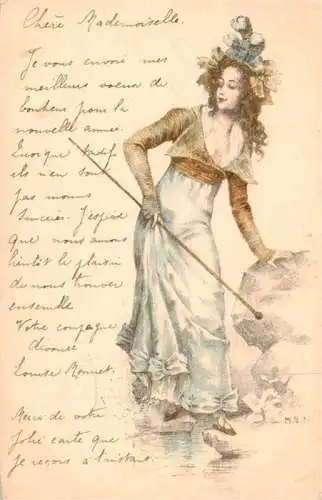 Chère Mademoiselle.
Je vous envoie mes
meilleurs voeux de
bonheur pour la
nouvelle année.
Quoique tardifs
ils n'en sont
pas moins
sincères. J'espère
que nous aurons
bientôt le plaisir
de nous trouver
ensemble
Votre compagne
dévouée
Louise Monnet
Merci de votre
jolie carte que
je reçois à l'instant.
M.B.N